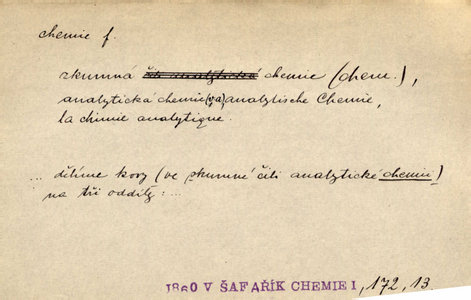 chemie f.
zkumná čili analytická chemie (chem.),
analytická chemie, analytische Chemie,
la chimie analytique.
... dělíme kovy (ve zkumné čili analytické chemii)
na tři oddíly: ...
1860 V ŠAFAŘÍK CHEMIE I, 172, 13.